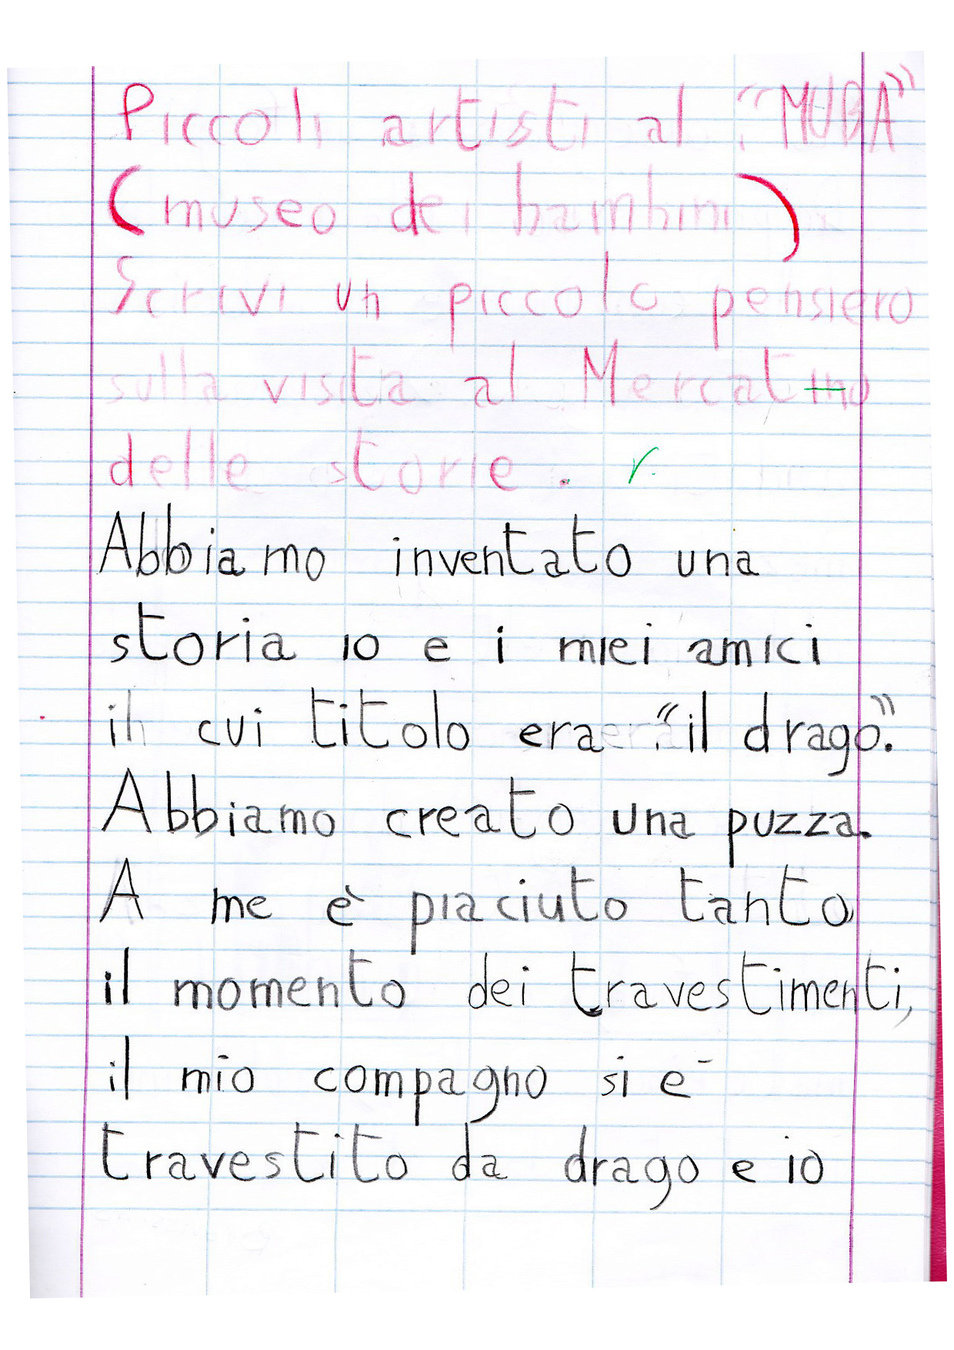 Piccoli artisti al "MUBA"
(museo dei bambini)
Scrivi un piccolo pensiero
sulla visita al Mercatino
delle storie.
Abbiamo inventato una
storia io e i miei amici
il cui titolo era "il drago".
Abbiamo creato una puzza.
A me è piaciuto tanto
il momento dei travestimenti,
il mio compagno si è
travestito da drago e io